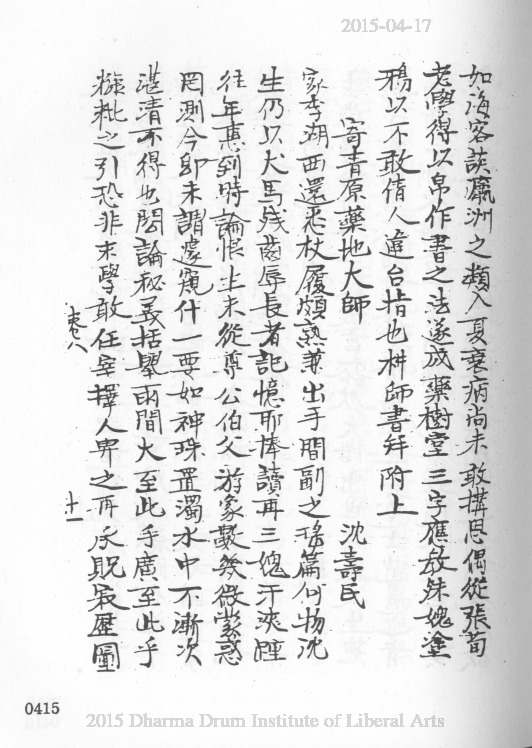 2015-04-17
如海客談瀛洲之類入夏衰病尚未敢搆思偶從張荀
老學得以帛作書之法遂成藥樹堂三字應教殊媿塗
鴉以不敢倩人違台指也耕師書并附上
寄青原藥地大師 沈壽民
家季湖西還悉杖履頗熟兼出手閒副之瑤篇何物沈
生仍以犬馬殘齒辱長者記憶耶捧讀再三媿汗浹踵
往年惠到時論恨生未從尊公伯父游象數幾微紫惑
罔測今卽未謂邊窺什一要如神珠置濁水中不漸次
湛清不得也閎論秘義括舉兩間大至此乎廣至此乎
糠粃之引恐非末學敢任幸擇人畀之再承貺衮歷圖
卷八 十一
0415
2015 Dharma Drum Institute of Liberal Arts